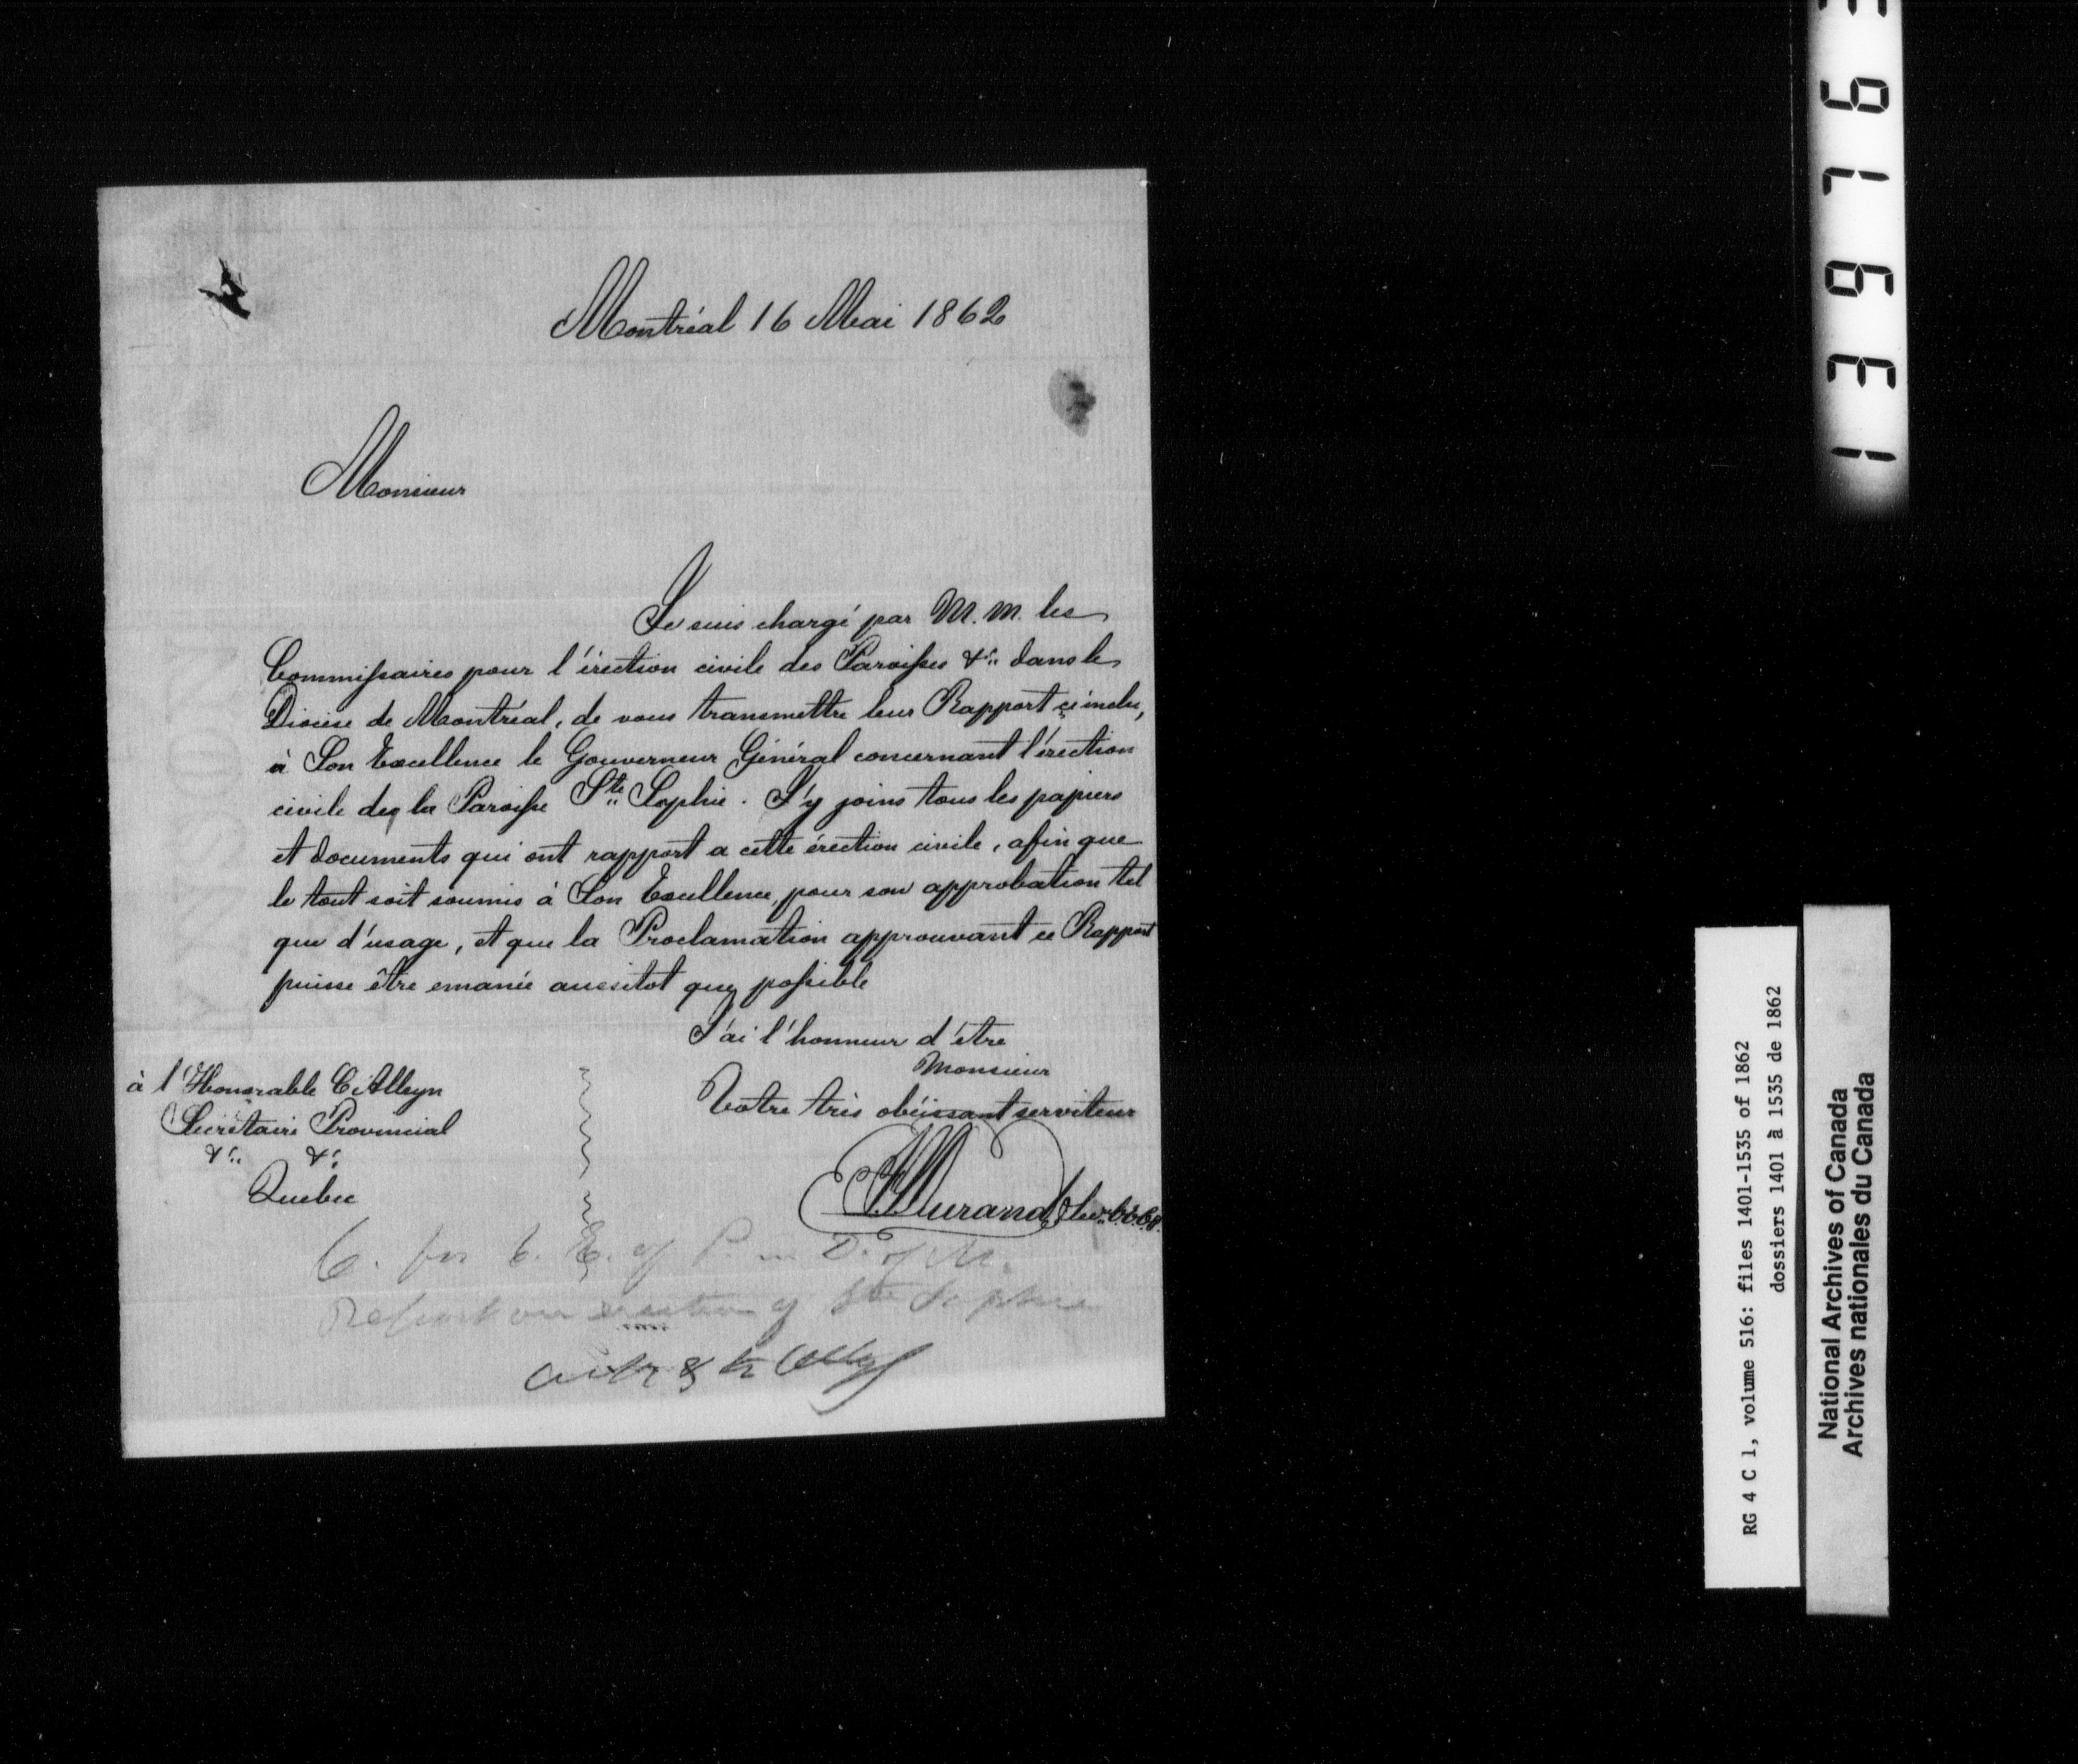 Montréal 16 Mai 1862
Monsieur
Je suis chargé par M. M. les
Commissaires pour l'érection civile des Paroisses &c. dans le
Diocèse de Montréal, de vous transmettre leur Rapport ci inclu,
à Son Excellence le Gouverneur Général concernant l'érection
civile de la Paroisse Ste Sophie. J'y joins tous les papiers
et documents qui ont rapport a cette érection civile, afin que
le tout soit soumis à Son Excellence, pour son approbation tel
que d'usage, et que la Proclamation approuvant ce Rapport
puisse être emanée aussitot que possible
J'ai l'honneur d'être
Monsieur
Votre très obéissant serviteur
à l'Honorable C Alleyn
Secrétaire Provincial
&c. &c.
Quebec
Durand
C. for C. E. of P. in D. of M.
Report on erection of Ste Sophie
RG 4 C 1, volume 516: files 1401-1535 of 1862
dossiers 1401 à 1535 de 1862
National Archives of Canada
Archives nationales du Canada
139763